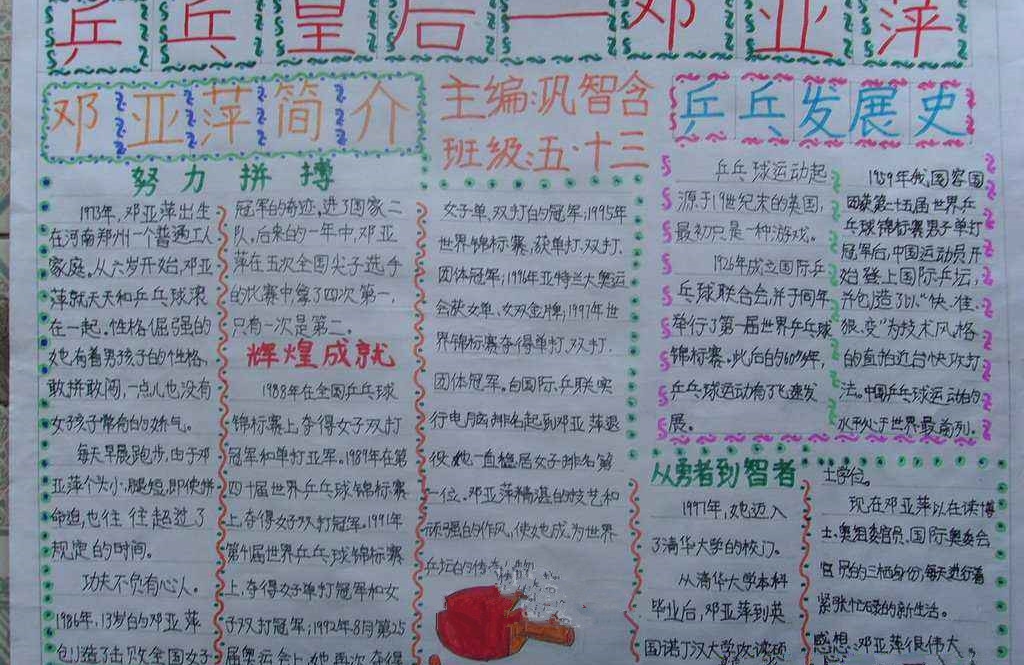 乒乓皇后—邓亚萍
邓亚萍简介
主编:巩智含
班级:五·十三
努力拼搏
1973年,邓亚萍出生
在河南郑州一个普通工人
家庭。从六岁开始,邓亚
萍就天天和乒乓球滚
在一起。性格倔强的
她,有着男孩子的性格,
敢拼敢闯,一点儿也没有
女孩子常有的娇气。
每天早晨跑步,由于邓
亚萍个头小,腿短,即使拼
命追,也往往超过了
规定的时间。
功夫不负有心人。
1986年,13岁的邓亚萍
创造了击败全国女子
冠军的奇迹,进了国家二
队。后来的一年中,邓亚
萍在五次全国尖子选手
的比赛中拿了四次第一,
只有一次是第二。
辉煌成就
1988年在全国乒乓球
锦标赛上,夺得女子双打
冠军和单打亚军。1989年在第
四十届世界乒乓球锦标赛
上,夺得女子双打冠军。1991年
第41届世界乒乓球锦标赛
上,夺得女子单打冠军和女
子双打冠军;1992年8月第25
届奥运会上,她再次夺得
女子单、双打的冠军;1995年
世界锦标赛,获单打、双打、
团体冠军;1996年亚特兰大奥运
会获女单、女双金牌;1997年世
界锦标赛夺得单打、双打、
团体冠军。自国际乒联实
行电脑排名起到邓亚萍退
役,她一直稳居女子排名第
一位。邓亚萍精湛的技艺和
顽强的作风,使她成为世界
乒坛的传奇人物
乒乓发展史
乒乓球运动起
源于19世纪末的英国,
最初只是一种游戏。
1926年成立国际乒
乓球联合会,并于同年
举行了第一届世界乒乓球
锦标赛。此后的60多年,
乒乓球运动有了飞速发
展。
1959年我国容国
团获第二十五届世界乒
乓球锦标赛男子单打
冠军后,中国运动员开
始登上国际乒坛,
并创造了以“快、准、
狠、变”为技术风格
的直拍近台快攻打
法。中国乒乓球运动的
水平处于世界最前列.
从勇者到智者
1997年,她迈入
了清华大学的校门。
从清华大学本科
毕业后,邓亚萍到英
国诺丁汉大学攻读硕
士学位。
现在邓亚萍以在读博
士、奥组委官员、国际奥委会
官员的三栖身份,每天进行着
紧张忙碌的新生活。
感想:邓亚萍很伟大。